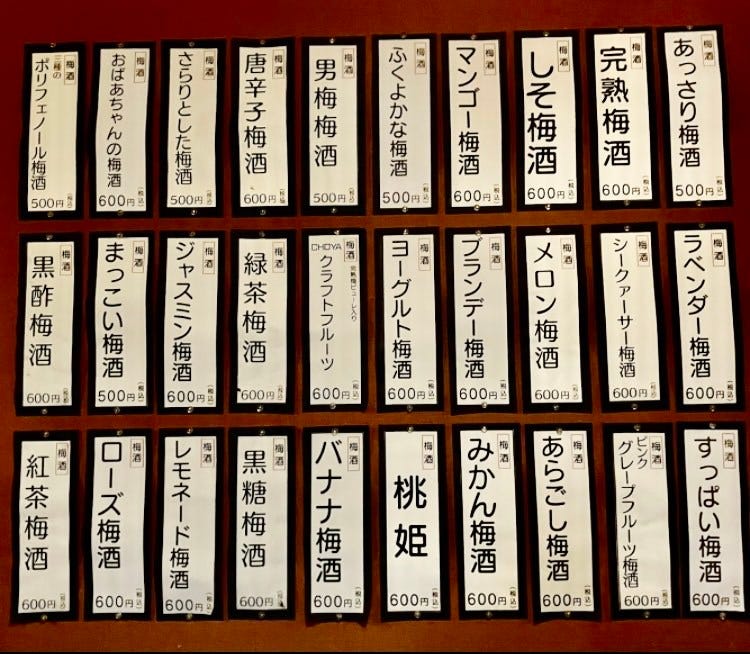 梅酒
あっさり梅酒
500円（税込）
梅酒
完熟梅酒
600円（税込）
梅酒
しそ梅酒
600円（税込）
梅酒
マンゴー梅酒
600円（税込）
梅酒
ふくよかな梅酒
500円（税込）
梅酒
男梅梅酒
500円（税込）
梅酒
唐辛子梅酒
600円（税込）
梅酒
さらりとした梅酒
500円（税込）
梅酒
おばあちゃんの梅酒
600円（税込）
梅酒
三種の
ポリフェノール梅酒
500円（税込）
梅酒
ラベンダー梅酒
600円（税込）
梅酒
シークァーサー梅酒
600円（税込）
梅酒
メロン梅酒
600円（税込）
梅酒
ブランデー梅酒
600円（税込）
梅酒
ヨーグルト梅酒
600円（税込）
梅酒
完熟梅ピューレ入り
CHOYA
クラフトフルーツ
600円（税込）
梅酒
緑茶梅酒
600円（税込）
梅酒
ジャスミン梅酒
600円（税込）
梅酒
まっこい梅酒
500円（税込）
梅酒
黒酢梅酒
600円（税込）
梅酒
すっぱい梅酒
600円（税込）
梅酒
ピンク
グレープフルーツ梅酒
600円（税込）
梅酒
あらごし梅酒
600円（税込）
梅酒
みかん梅酒
600円（税込）
梅酒
桃姫
600円（税込）
梅酒
バナナ梅酒
600円（税込）
梅酒
黒糖梅酒
600円（税込）
梅酒
レモネード梅酒
600円（税込）
梅酒
ローズ梅酒
600円（税込）
梅酒
紅茶梅酒
600円（税込）